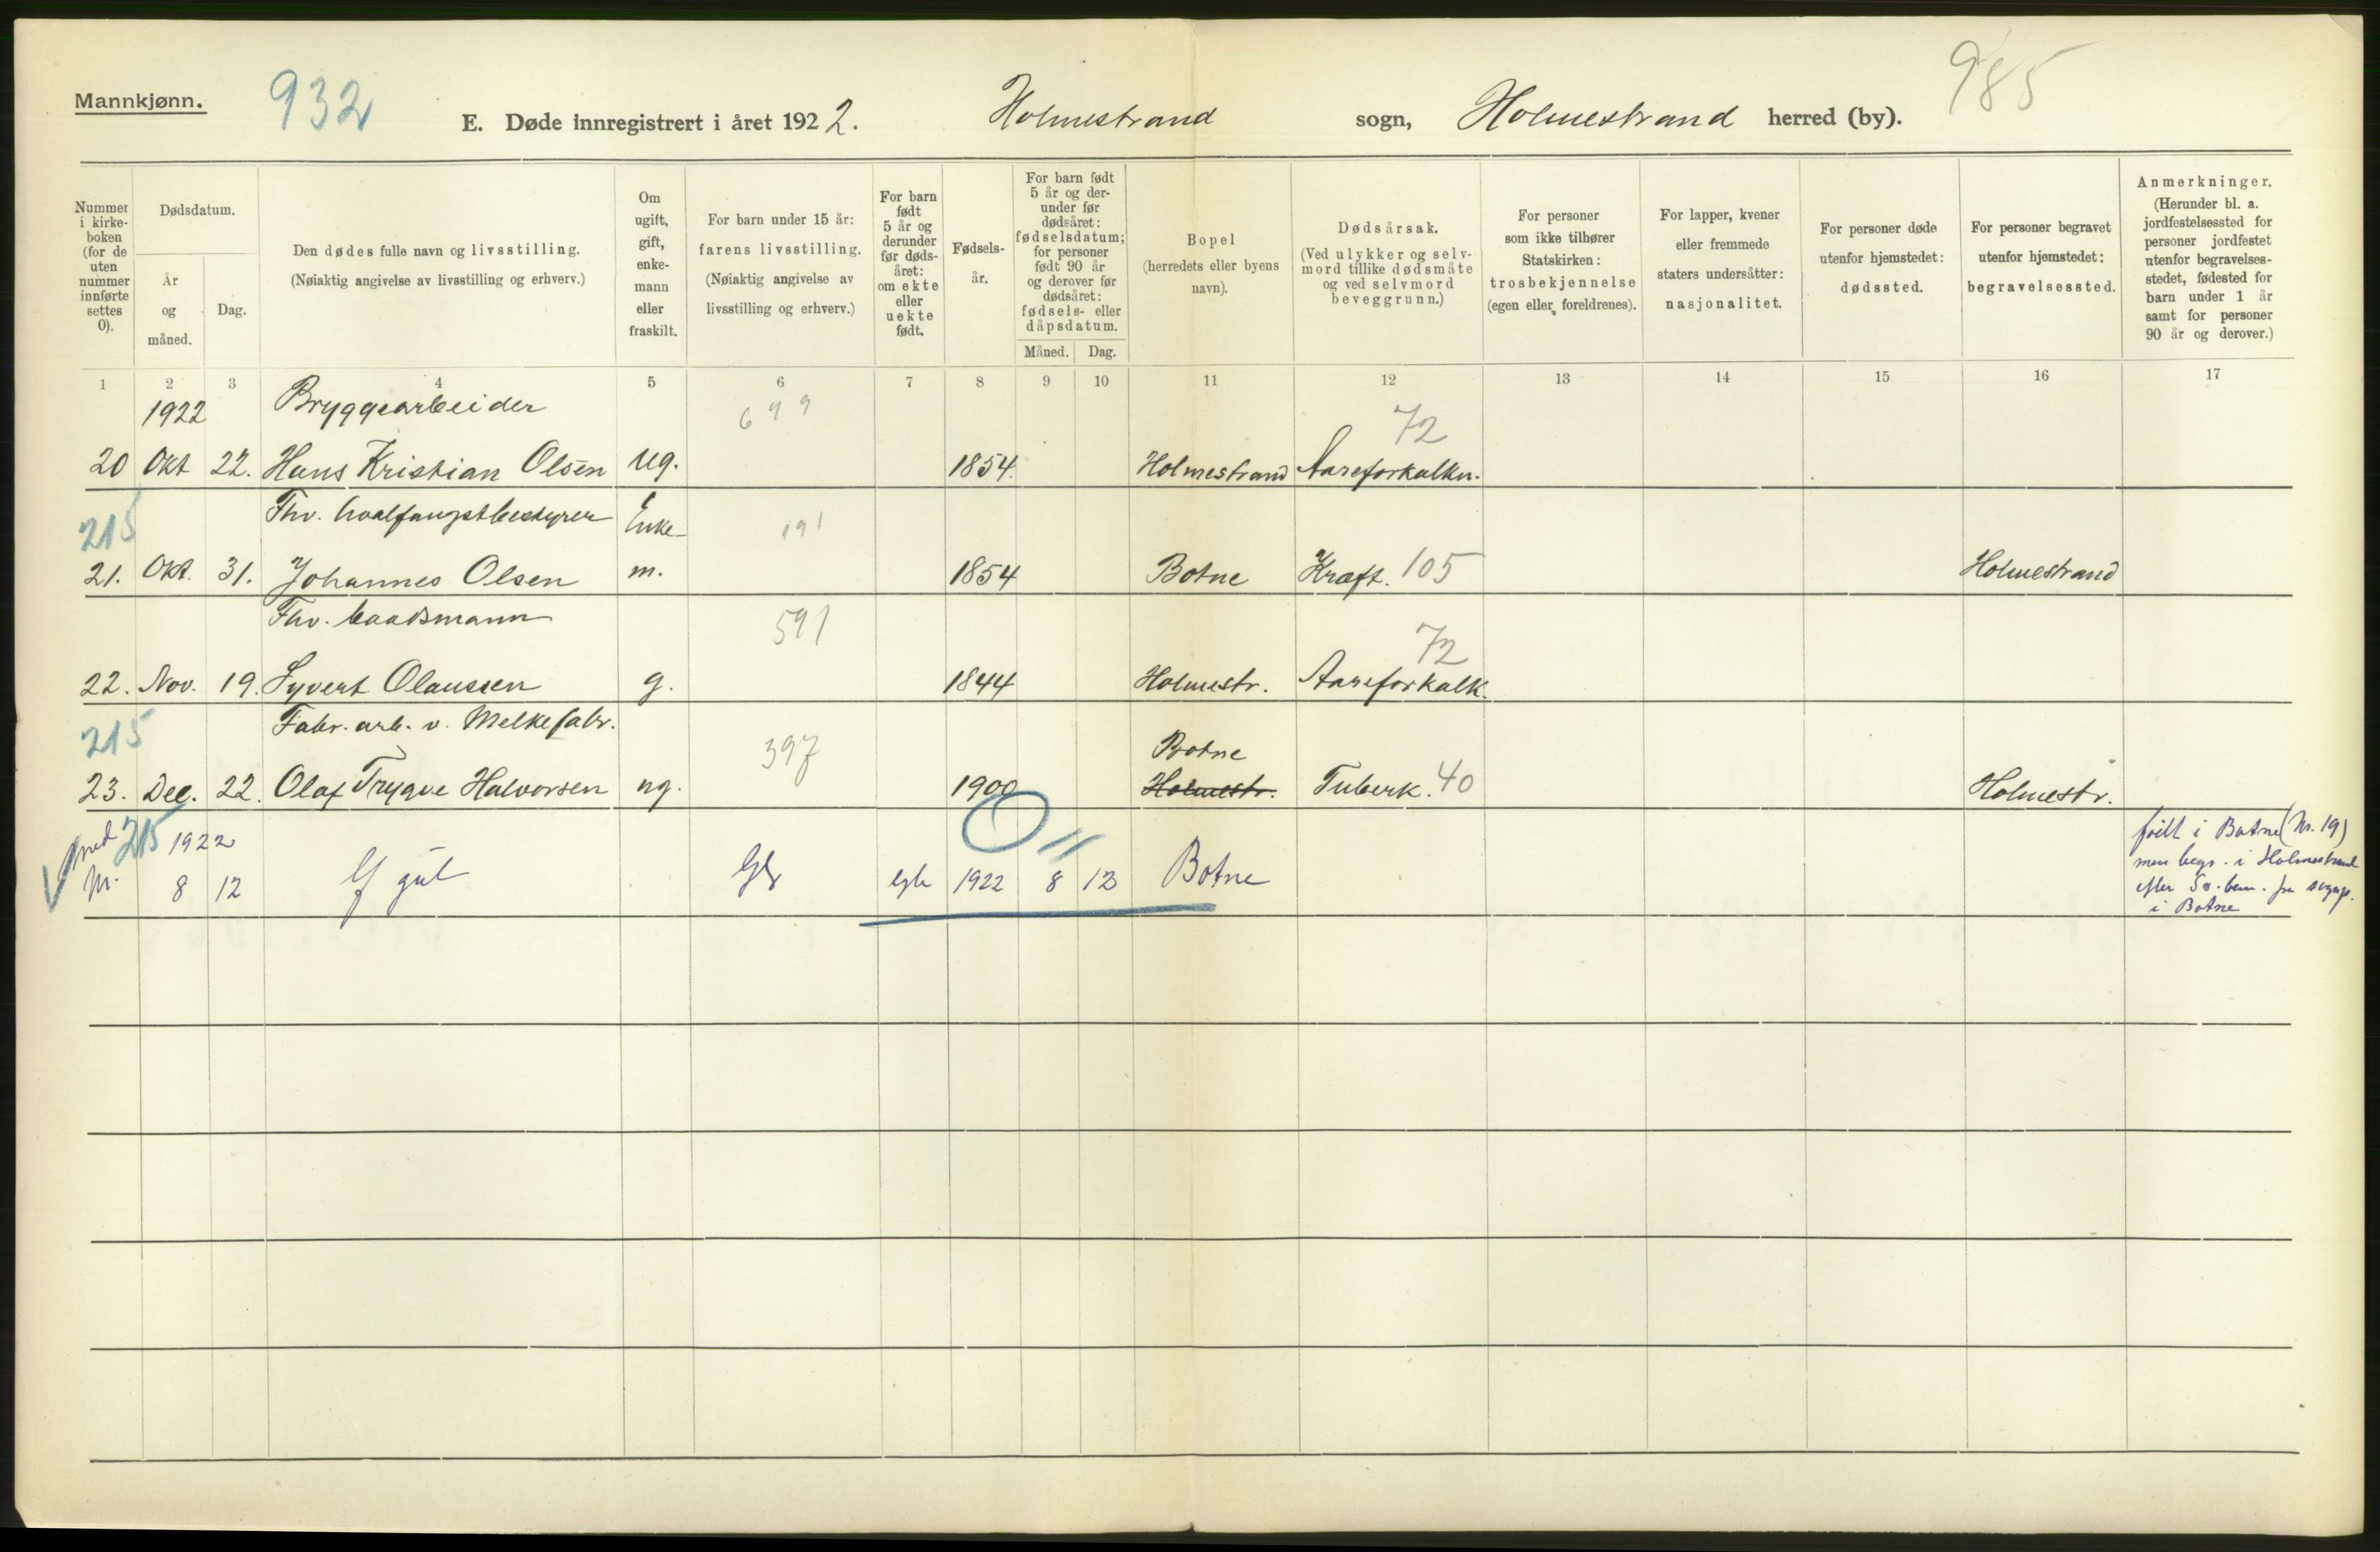 Mannkjønn.
932
E. Døde innregistrert i året 1922. Holmestrand sogn, Holmestrand herred (by).
985
Nummer i kirkeboken (for de uten nummer innførte settes 0).
Dødsdatum.
År og måned.
Dag.
Den dødes fulle navn og livsstilling.
(Nøiaktig angivelse av livsstilling og erhverv.)
Om ugift, gift, enkemann eller fraskilt.
For barn under 15 år: farens livsstilling.
(Nøiaktig angivelse av livsstilling og erhverv.)
For barn født 5 år og derunder før dødsåret: om ekte eller uekte født.
Fødselsår.
For barn født 5 år og derunder før dødsåret: fødselsdatum; for personer født 90 år og derover før dødsåret: fødsels- eller dåpsdatum.
Måned. Dag.
Bopel
(herredets eller byens navn).
Dødsårsak.
(Ved ulykker og selvmord tillike dødsmåte og ved selvmord beveggrunn.)
For personer som ikke tilhører Statskirken: trosbekjennelse (egen eller foreldrenes).
For lapper, kvener eller fremmede staters undersåtter: nasjonalitet.
For personer døde utenfor hjemstedet: dødssted.
For personer begravet utenfor hjemstedet: begravelsessted.
Anmerkninger.
(Herunder bl. a. jordfestelsessted for personer jordfestet utenfor begravelsesstedet, fødested for barn under 1 år samt for personer 90 år og derover.)
1 2 3 4 5 6 7 8 9 10 11 12 13 14 15 16 17
1922 Bryggearbeider 699 72
20 Okt 22. Hans Kristian Olsen ug. 1854. Holmestrand Aareforkalkn.
215 Fhv. hvalfangstbestyrer Enke- 191
21. Okt. 31. Johannes Olsen m. 1854 Botne Kræft. 105 Holmestrand
Fhv. baadsmann 591 72
22. Nov. 19. Syvert Olaussen g. 1844 Holmestr. Aareforkalk.
215 Fabr. arb. v. Melkefabr. 397 Botne
23. Dec. 22. Olaf Trygve Halvorsen ug. 1900 Holmestr. Tuberk. 40 Holmestr.
215 1922
8 12 1922 8 12 Botne
født i Botne (Nr. 19)
men begr. i Holmestrand
efter
i Botne